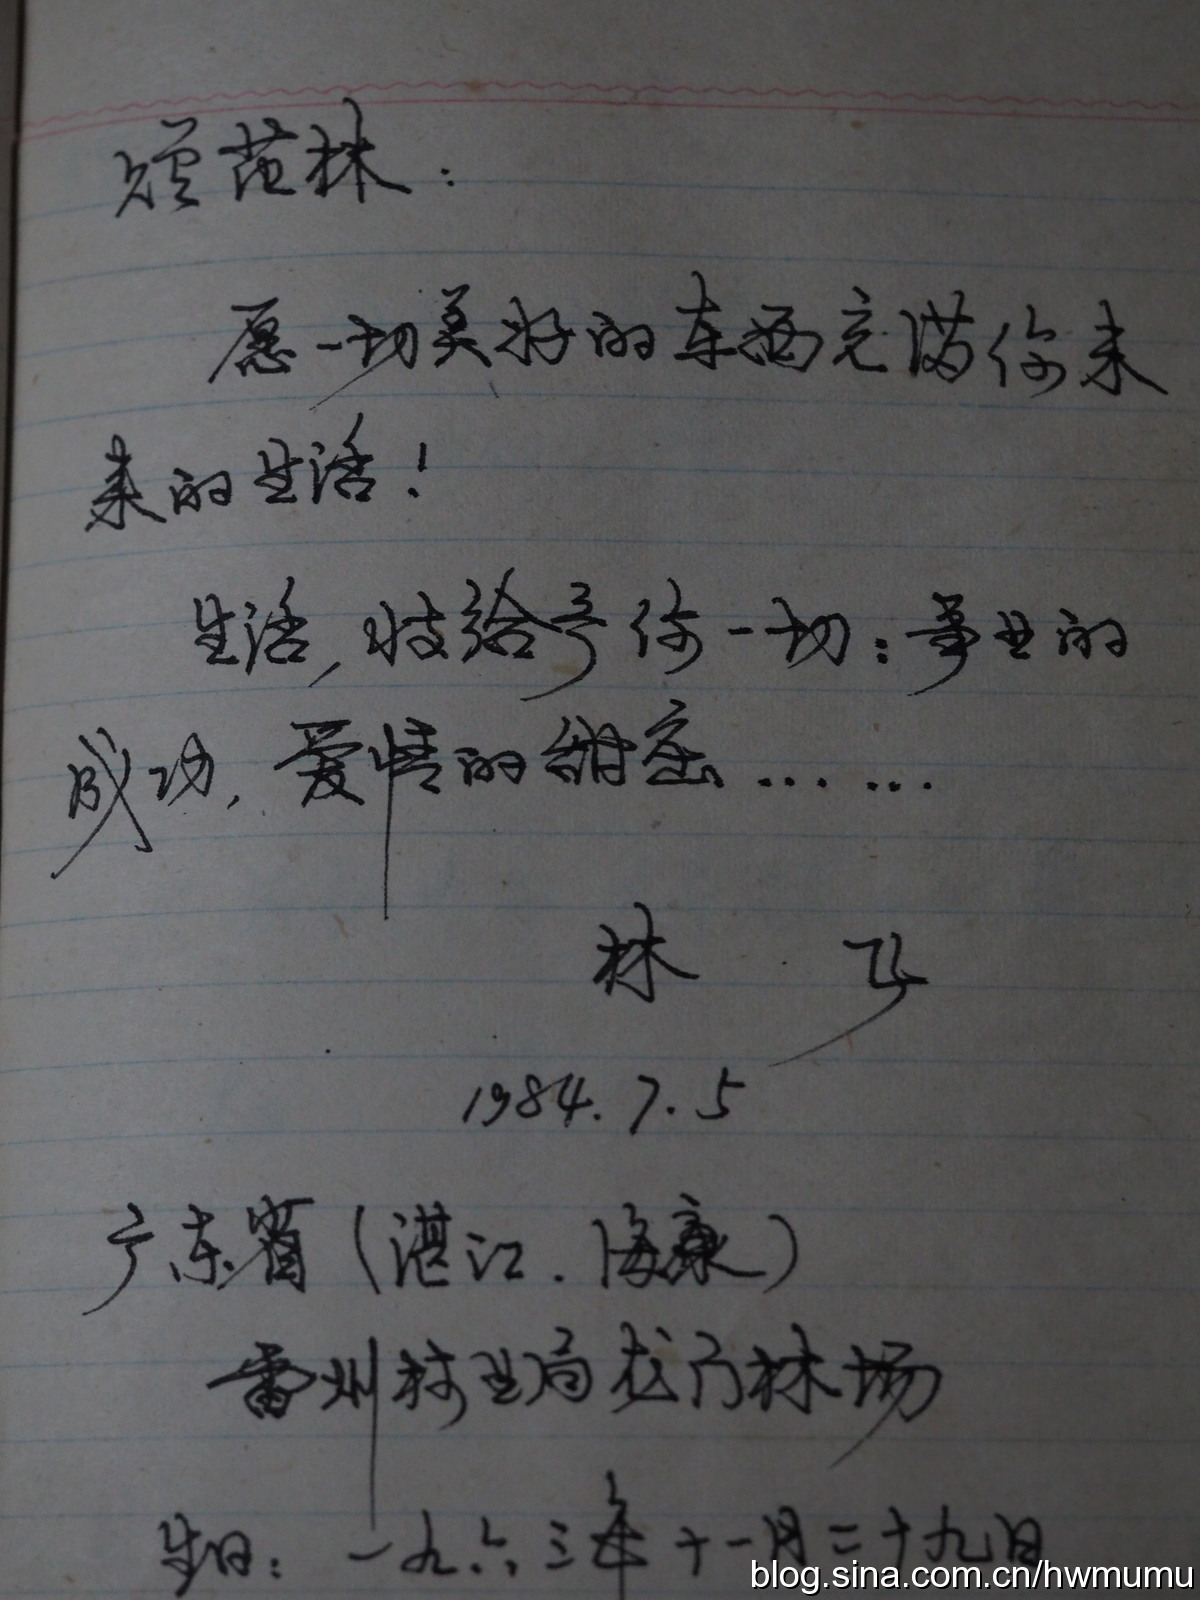 赠范林：
愿一切美好的东西充满你未
来的生活！
生活，将给予你一切：事业的
成功，爱情的甜蜜……
林
1984.7.5
广东省（湛江．海康）
雷州林业局龙门林场
生日：一九六三年十一月二十九日
blog.sina.com.cn/hwmumu